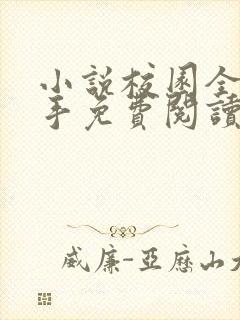 小說校園全
手免費閱讀
威廉-亞歷山大